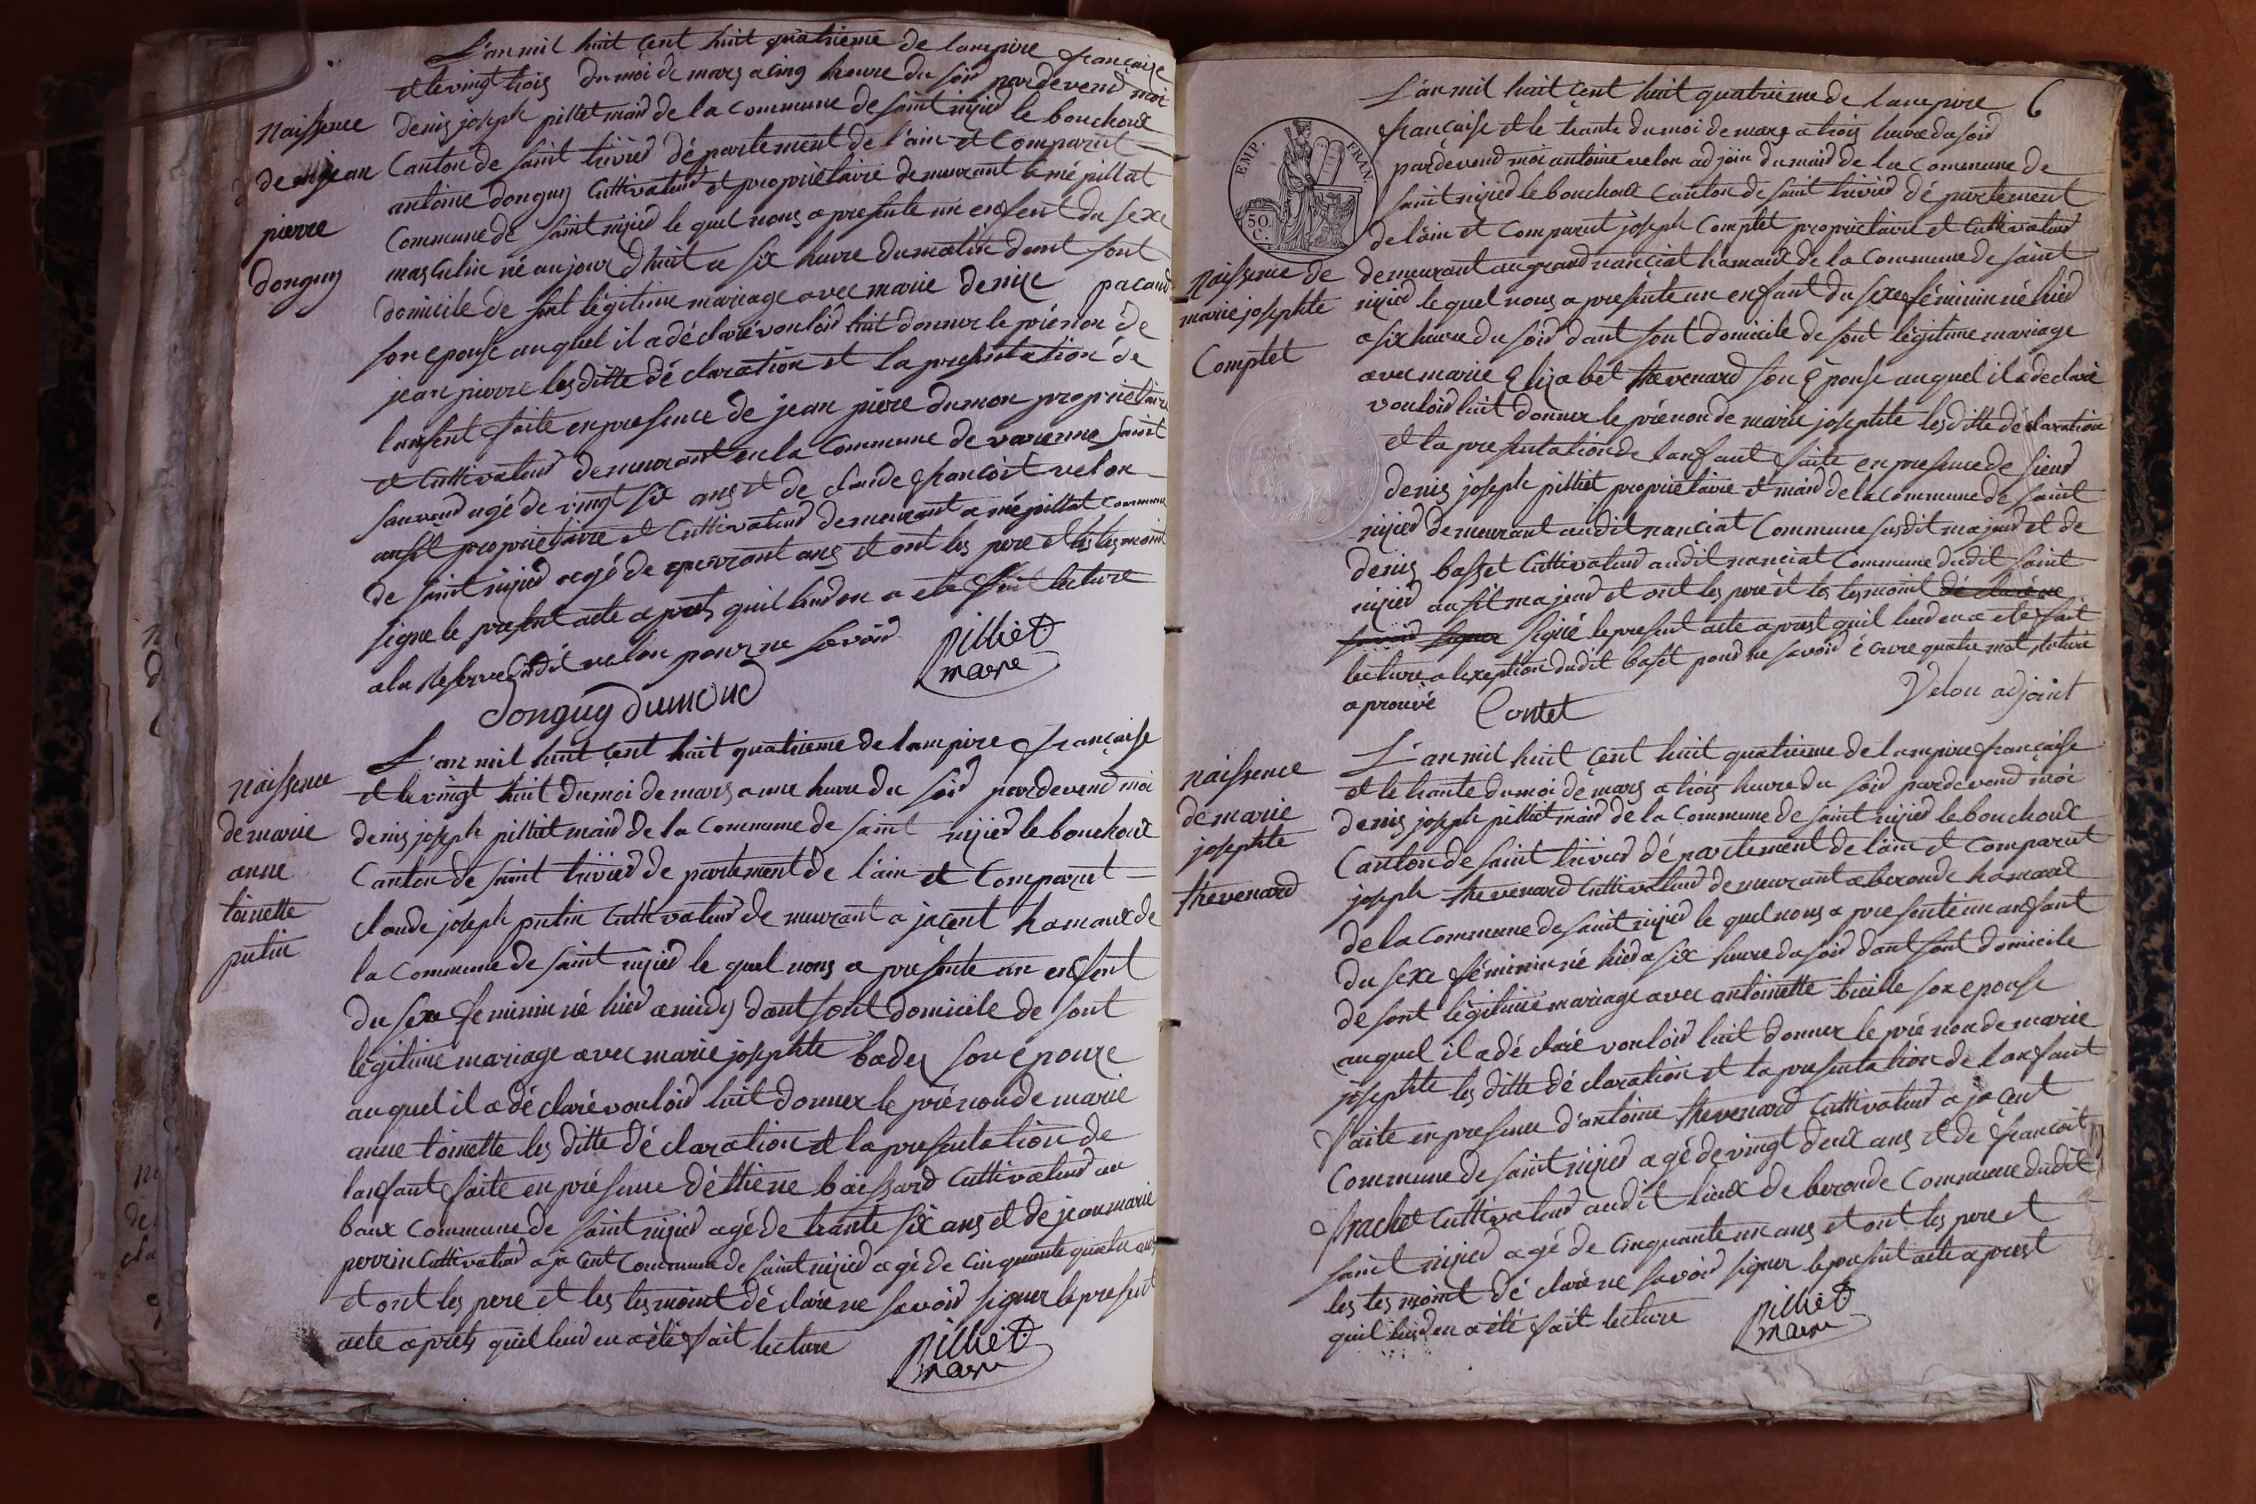 L'an mil huit çent huit quatrieme de lampire française
et le vingt trois du moi de mars a cinq heure du soir pardevend moi
denis joseph pilliet maid de la commune de saint nizied le bouchoux
Canton de saint trivied département de l'ain et Comparut
antoine donguy Cuttivateud et propriétaire demeurant a mépillat
Commune de saint nizied le quel nous a presente un enfent du sexe
masculin né aujour d'huit a six heure du matin dant sont
domicile de sont légitime mariage avec marie denise pacaud
son epouse auquel il a déclaré vouloid luit donner le prénon de
jean pierre les ditte déclaration et la presentation de
lansent faite en presence de jean piere dumon propriétaire
et Cuttivateud demeurant en la Commune de varenne saint
sauveud agé de vingt six ans et de claude françoit velon
ausit propriétaire et Cuttivateud demeurant a mépillat Commune
de saint nizied agé de quarant ans et ont les pere et les tesmoint
signe le present acte a pres quil leud en a ete fait lecture
a la Reserve dudit velon pour ne savoid
pilliet
maire
Donguy dumond
naissence
de jean
pierre
donguy
L'an mil huit çent huit quatrieme de lampire française
et le vingt huit du moi de mars a une heure du soid pardevend moi
denis joseph pilliet maid de la Commune de saint nizied le bouchoux
Canton de saint trivied de partement de l'ain et Comparut
claude joseph putin Cuttivateud demeurant a jacent hamaux de
la Commune de saint nizied le quel nous a presente un enfent
du sexe feminin né hied a midy dant sont domicile de sont
légitime mariage avec marie josephte badey son épouse
auquel il a déclaré vouloid luit donner le prénon de marie
anne toinette les ditte déclaration et la presentation de
lanfant faite en présence détiene boissard Cuttivateud au
baux Commune de saint nizied agé de trante six ans et de jean marie
perrin Cuttivateud a jacent Commune de saint nizied agé de Cinquante quatre ans
et ont les pere et les tesmoint déclaré ne savoid signer le present
acte apres quil leud en a été fait lecture
pilliet
maire
naissence
de marie
anne
toinette
putin
6
EMP. FRAN.
50
C.
L'an mil huit çent huit quatrieme de lampire
française et le trante du moi de mars a trois heure du soid
pardevend moi antoine velon adjoin du maid de la Commune de
saint nizied le bouchoux Canton de saint trivied département
de l'ain et Comparut joseph Comptet propriétaire et Cuttivateud
demeurant au grand nanciat hamaux de la Commune de saint
nizied le quel nous a presente un enfant du sexe féminin né hied
a six heure du soid dant sont domicile de sont légitime mariage
avec marie Elizabet thevenard son Epouse auquel il a déclaré
vouloid luit donner le prénon de marie josephte les ditte déclaration
et la presentation de lanfant faite en presence de sieud
denis joseph pilliet propriétaire et maid de la Commune de saint
nizied demeurant audit nanciat Commune susdit majeud et de
denis basset Cuttivateud audit nanciat Commune dudit saint
nizied ausit majeud et ont les pere et les tesmoint déclaré ne
savoid signer signé le present acte aprest quil leud en a eté fait
lecture a lexeption dudit baset poud ne savoid écrire quatre mot
aprouvé
Contet
Velon adjoint
naissence de
marie josephte
Comptet
L'an mil huit çent huit quatrieme de lampire française
et le trante du moi de mars a trois heure du soid pardevend moi
denis joseph pilliet maid de la Commune de saint nizied le bouchoux
Canton de saint trivied département de l'ain et Comparut
joseph thevenard Cuttivateud demeurant a beronde hamaux
de la Commune de saint nizied le quel nous a presente un anfant
du sexe féminin né hied a six heure du soid dant sont domicile
de sont légitime mariage avec antoinette bieille son epouse
auquel il a déclaré vouloid luit donner le prénon de marie
josephte les ditte déclaration et la presentation de lanfant
faite en presence d'antoine thevenard Cuttivateud a jacent
Commune de saint nizied agé de vingt deux ans et de françoit
frachet Cuttivateud audit lieux de beronde Commune dudit
saint nizied agé de Cinquante un ans et ont les pere et
les tesmoint déclaré ne savoid signer le present acte aprest
quil leud en a été fait lecture
pilliet
maire
naissence
de marie
josephte
thevenard